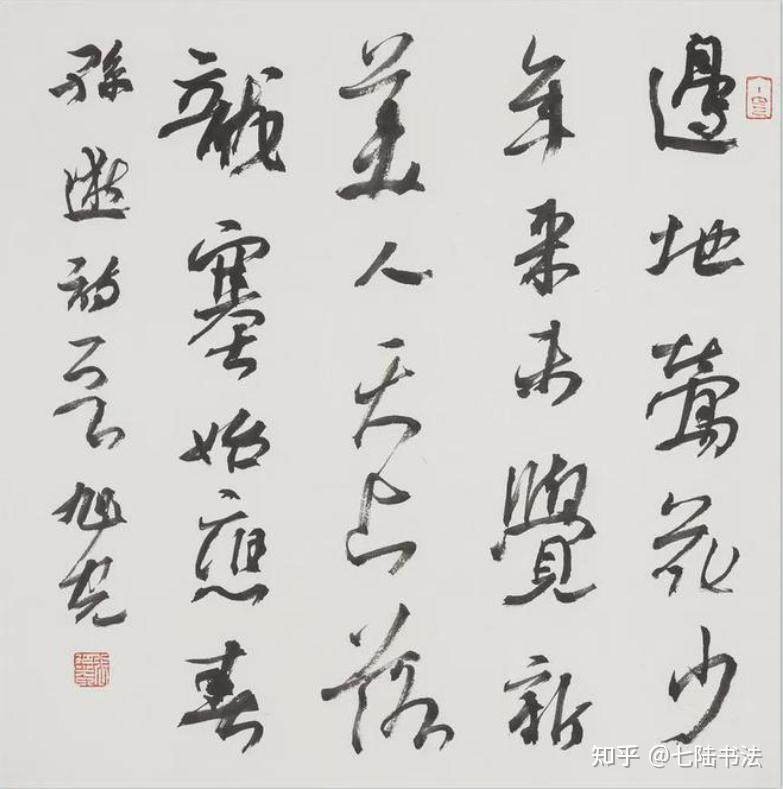 邊地鶯花少
年來未覺新
美人天上落
龍塞始應春
孫逖詩一首旭光
知乎 @七陆书法